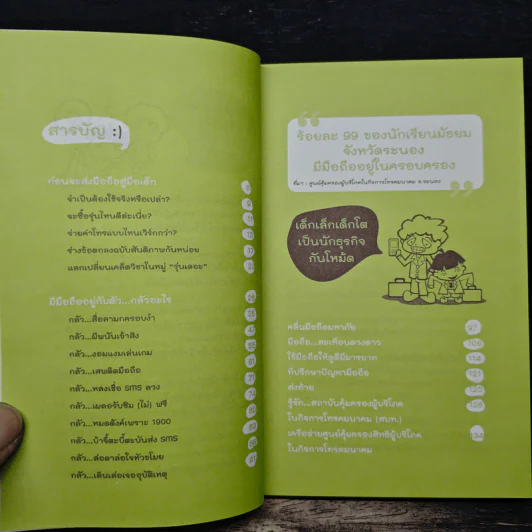 สารบัญ :)
ก่อนจะส่งมือถือสู่มือเด็ก
จำเป็นต้องใช้จริงหรือเปล่า?
จะซื้อรุ่นไหนดีล่ะเนี่ย?
จ่ายค่าโทรแบบไหนเวิร์กกว่า?
ร่างข้อตกลงฉบับสันติภาพกันหน่อย
แลกเปลี่ยนเคล็ดวิชาในหมู่ “รุ่นเดอะ”
มีมือถืออยู่กับตัว...กลัวอะไร
กลัว...สื่อลามกครอบงำ
กลัว...ผีพนันเข้าสิง
กลัว...งอมแงมเล่นเกม
กลัว...เสพติดมือถือ
กลัว...หลงเชื่อ SMS ลวง
กลัว...เผลอรับซิม (ไม่) ฟรี
กลัว...หมดตังค์เพราะ 1900
กลัว...บ้าจี้ตะบี้ตะบันส่ง SMS
กลัว...ล่อตาล่อใจหัวขโมย
กลัว...เดินเล่อเจออุบัติเหตุ
“ร้อยละ 99 ของนักเรียนมัธยม
จังหวัดระนอง
มีมือถืออยู่ในครอบครอง”
ที่มา : ศูนย์คุ้มครองผู้บริโภคในกิจการโทรคมนาคม จ.ระนอง
เด็กเล็กเด็กโต
เป็นนักธุรกิจ
กันไหม้ด
คลื่นมือถือมหาภัย 97
มือถือ...สะเทือนดวงดาว
ใช้มือถือให้ดูดีมีมารยาท 114
ที่ปรึกษาปัญหามือถือ 121
ส่งท้าย
รู้จัก...สถาบันคุ้มครองผู้บริโภค
ในกิจการโทรคมนาคม (สบท.)
เครือข่ายศูนย์คุ้มครองสิทธิผู้บริโภค
ในกิจการโทรคมนาคม